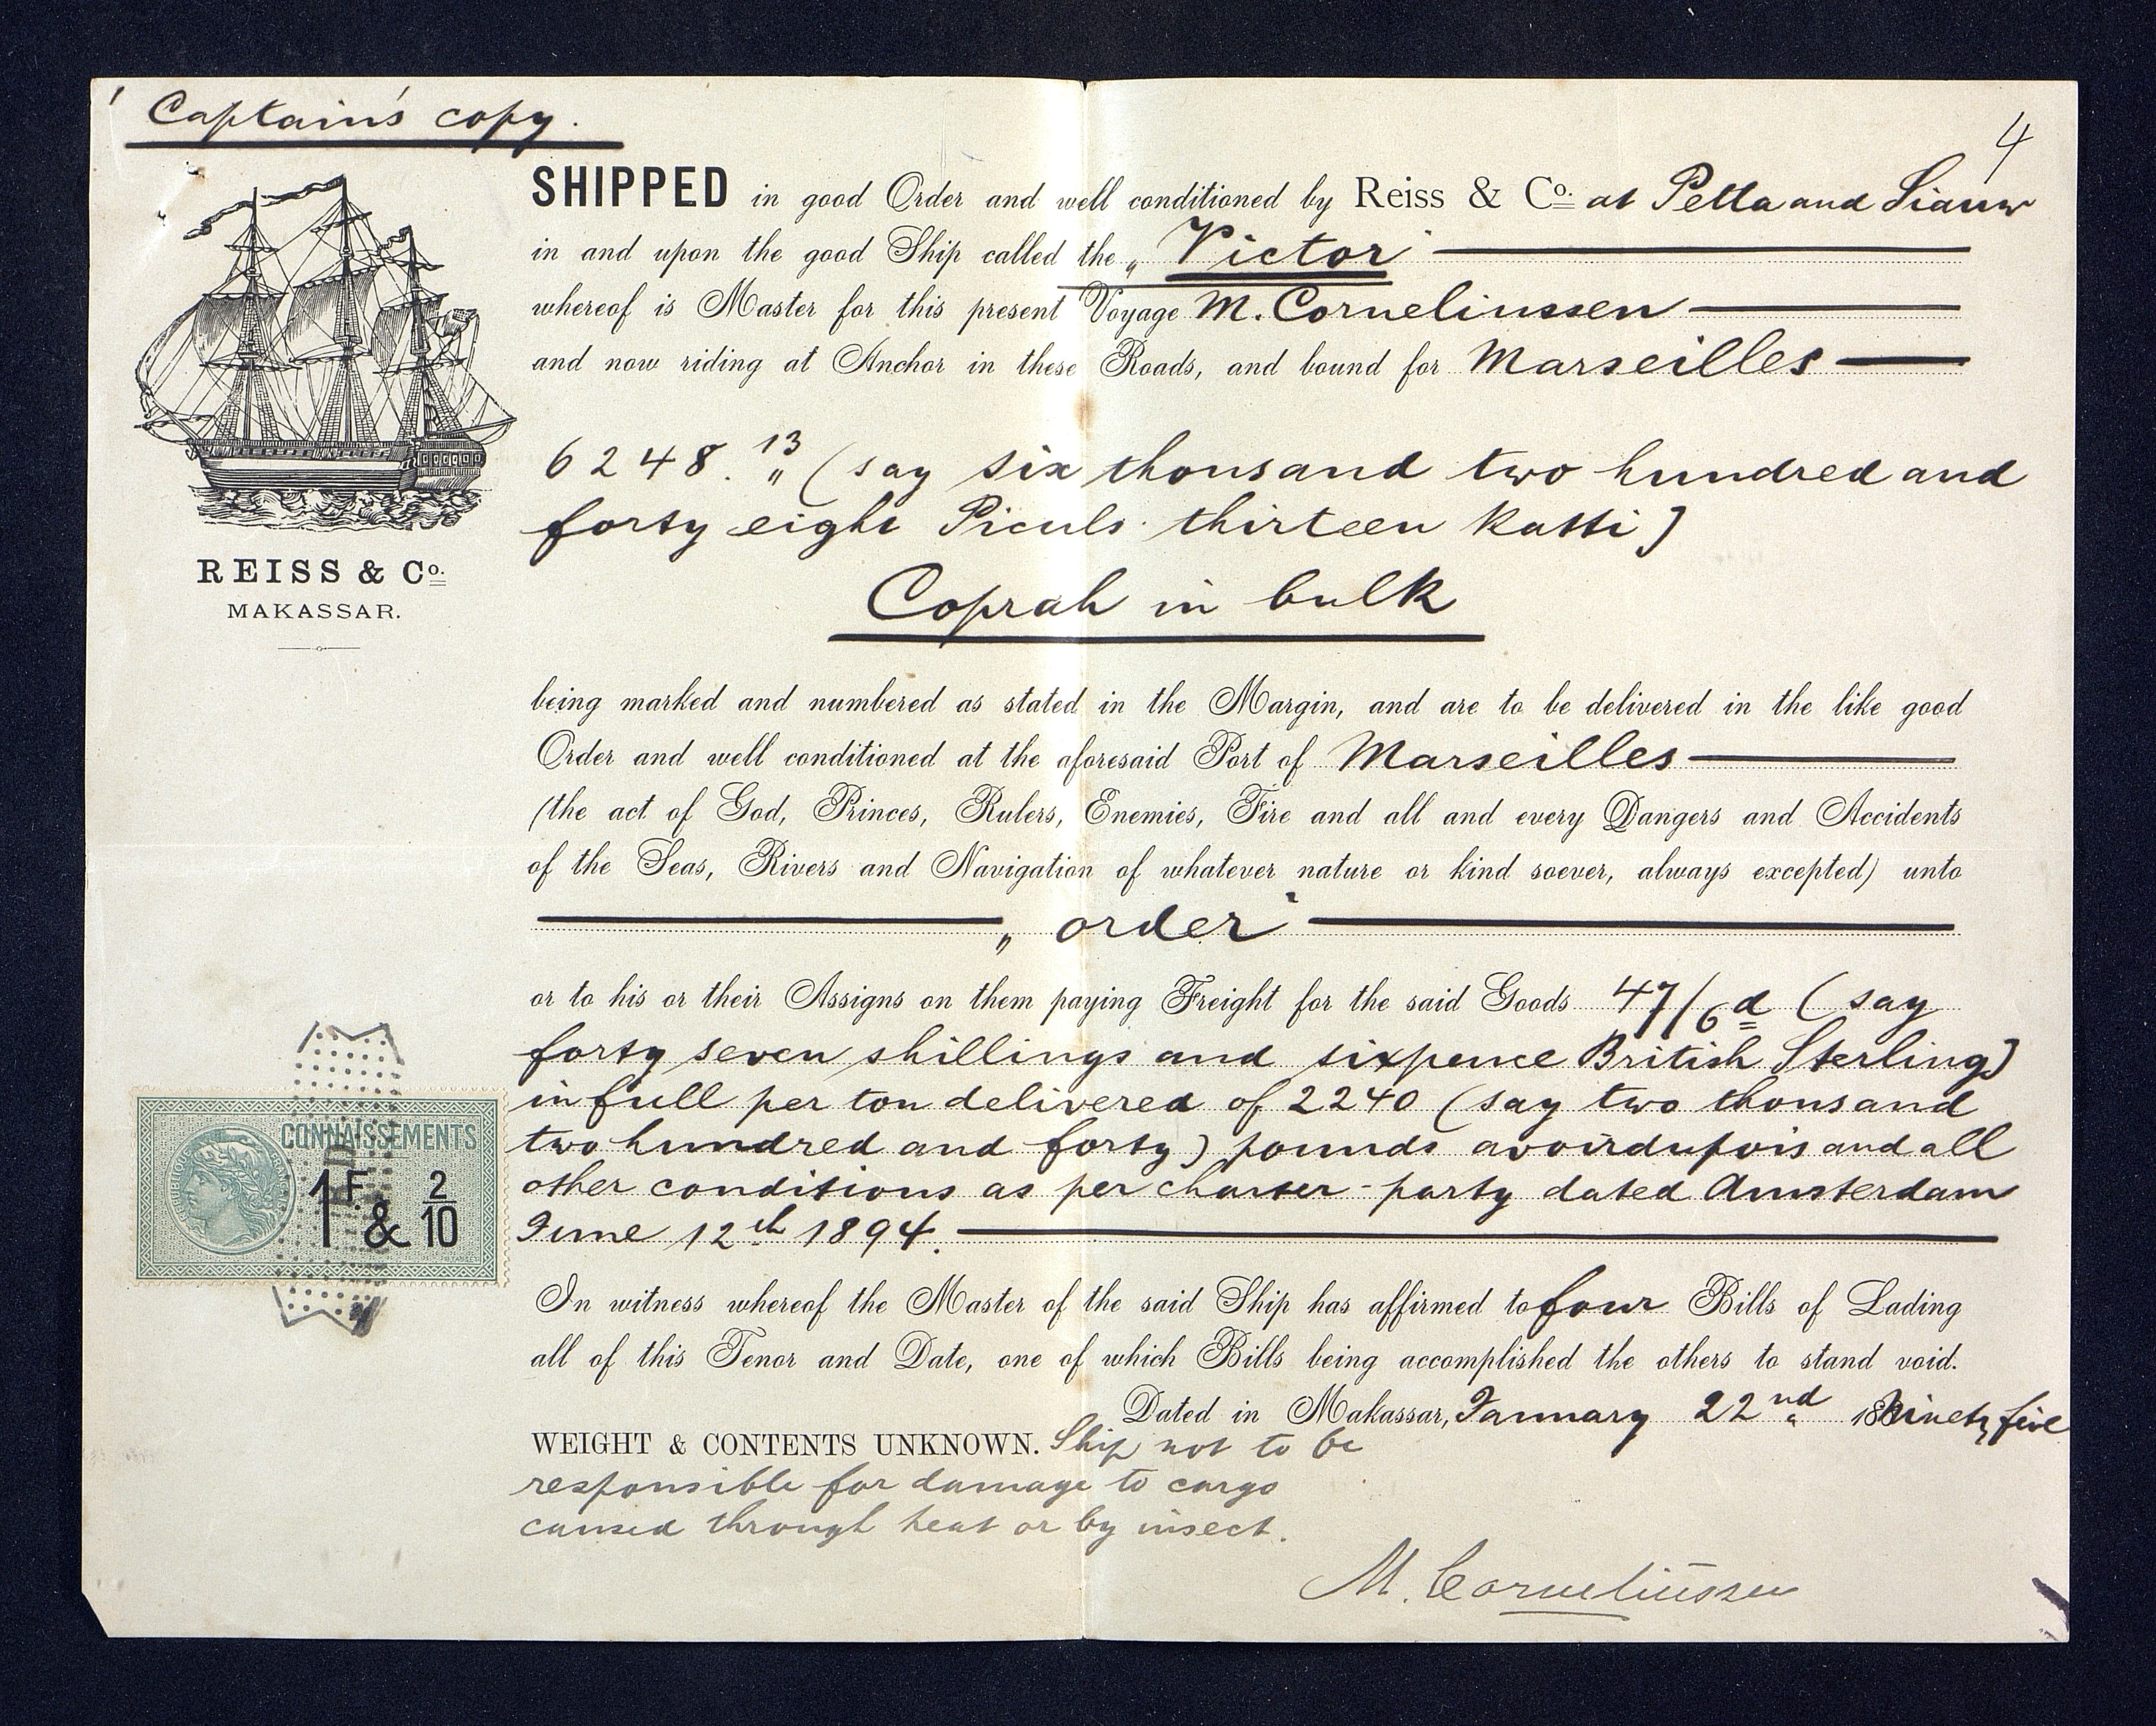 Captain's copy.
4
SHIPPED in good Order and well conditioned by Reiss & Co. at Petta and Siauw
in and upon the good Ship called the „Victor"
whereof is Master for this present Voyage M. Corneliussen
and now riding at Anchor in these Roads, and bound for Marseilles
6248.13„ (say six thousand two hundred and
forty eight Piculs thirteen Katti)
Coprah in bulk
REISS & Co.
MAKASSAR.
being marked and numbered as stated in the Margin, and are to be delivered in the like good
Order and well conditioned at the aforesaid Port of Marseilles
(the act of God, Princes, Rulers, Enemies, Fire and all and every Dangers and Accidents
of the Seas, Rivers and Navigation of whatever nature or kind soever, always excepted) unto
„order"
or to his or their Assigns on them paying Freight for the said Goods 47/6d (say
forty seven shillings and sixpence British Sterling)
in full per ton delivered of 2240 (say two thousand
two hundred and forty) pounds avoirdupois and all
other conditions as per charter-party dated Amsterdam
June 12th 1894.
CONNAISSEMENTS
1F. & 2/10
In witness whereof the Master of the said Ship has affirmed to four Bills of Lading
all of this Tenor and Date, one of which Bills being accomplished the others to stand void.
Dated in Makassar, January 22nd 18Ninety five
WEIGHT & CONTENTS UNKNOWN. Ship not to be
responsible for damage to cargo
caused through heat or by insect.
M. Corneliussen